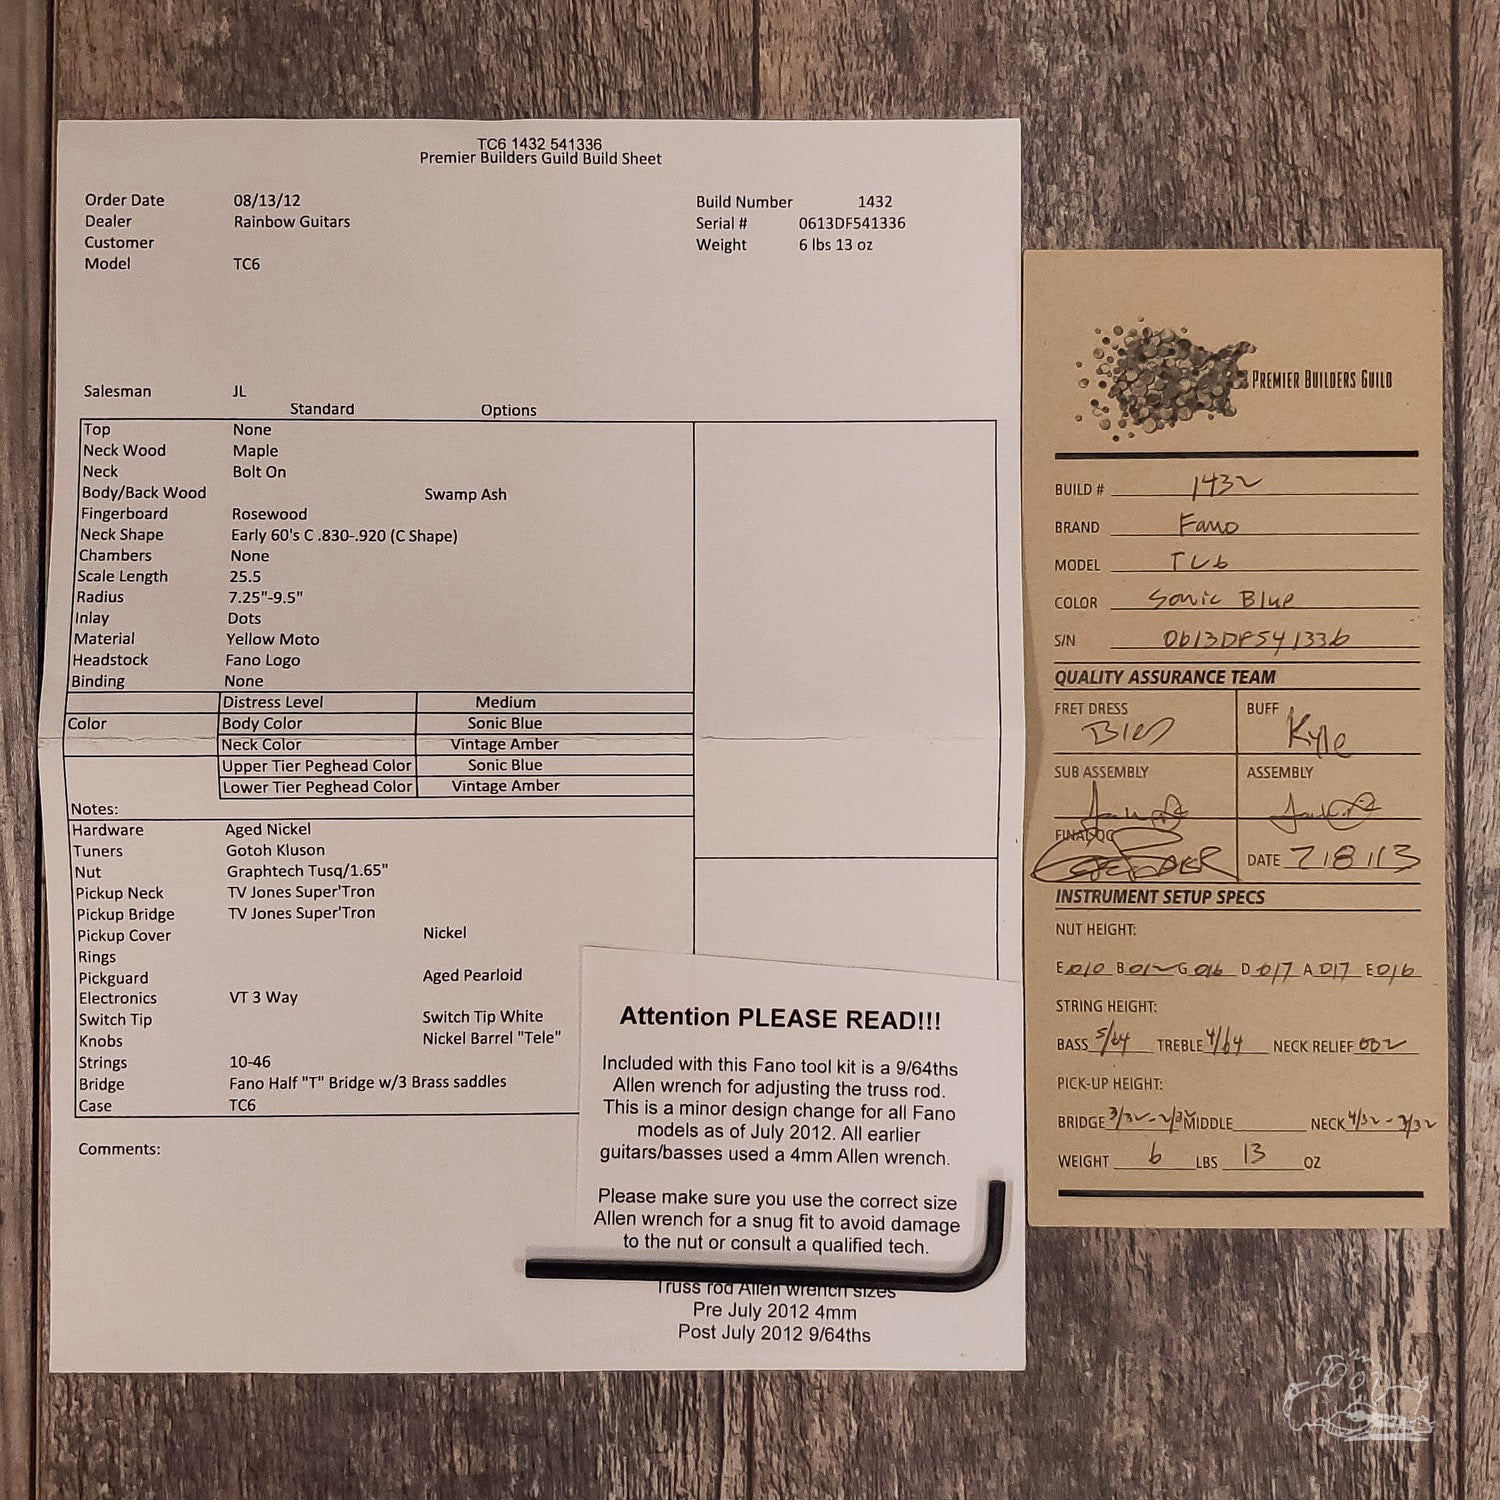 TC6 1432 541336
Premier Builders Guild Build Sheet
Order Date 08/13/12
Dealer Rainbow Guitars
Customer
Model TC6
Build Number 1432
Serial # 0613DF541336
Weight 6 lbs 13 oz
Salesman JL
Standard Options
Top None
Neck Wood Maple
Neck Bolt On
Body/Back Wood Swamp Ash
Fingerboard Rosewood
Neck Shape Early 60's C .830-.920 (C Shape)
Chambers None
Scale Length 25.5
Radius 7.25"-9.5"
Inlay Dots
Material Yellow Moto
Headstock Fano Logo
Binding None
Distress Level Medium
Color Body Color Sonic Blue
Neck Color Vintage Amber
Upper Tier Peghead Color Sonic Blue
Lower Tier Peghead Color Vintage Amber
Notes:
Hardware Aged Nickel
Tuners Gotoh Kluson
Nut Graphtech Tusq/1.65"
Pickup Neck TV Jones Super'Tron
Pickup Bridge TV Jones Super'Tron
Pickup Cover Nickel
Rings
Pickguard Aged Pearloid
Electronics VT 3 Way
Switch Tip Switch Tip White
Knobs Nickel Barrel "Tele"
Strings 10-46
Bridge Fano Half "T" Bridge w/3 Brass saddles
Case TC6
Comments:
Attention PLEASE READ!!!
Included with this Fano tool kit is a 9/64ths
Allen wrench for adjusting the truss rod.
This is a minor design change for all Fano
models as of July 2012. All earlier
guitars/basses used a 4mm Allen wrench.
Please make sure you use the correct size
Allen wrench for a snug fit to avoid damage
to the nut or consult a qualified tech.
Truss rod Allen wrench sizes
Pre July 2012 4mm
Post July 2012 9/64ths
PREMIER BUILDERS GUILD
BUILD # 1432
BRAND Fano
MODEL TC6
COLOR Sonic Blue
S/N 0613DF541336
QUALITY ASSURANCE TEAM
FRET DRESS BUFF
Kyle
SUB ASSEMBLY ASSEMBLY
FINAL QC
DATE 7/8/13
INSTRUMENT SETUP SPECS
NUT HEIGHT:
E 010 B 012 G 016 D 017 A 017 E 016
STRING HEIGHT:
BASS 5/64 TREBLE 4/64 NECK RELIEF 002
PICK-UP HEIGHT:
BRIDGE 3/32-2/32 MIDDLE NECK 4/32-3/32
WEIGHT 6 LBS 13 OZ